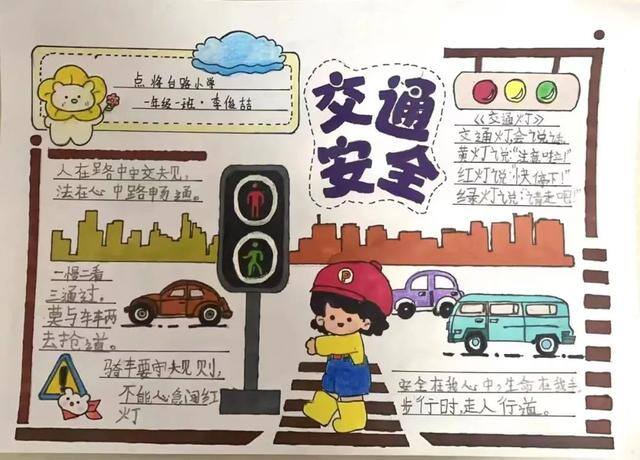 点将台路小学
一年级一班·李俊喆
交通
安全
《交通灯》
交通灯,会说话,
黄灯说:"注意啦!"
红灯说"快停下!"
绿灯说:"请走吧!"
人在路中守交规,
法在心中路畅通。
一慢二看
三通过。
莫与车辆
去抢道。
骑车要守规则,
不能心急闯红
灯
P
安全在我心中,生命在我手
步行时,走人行道。